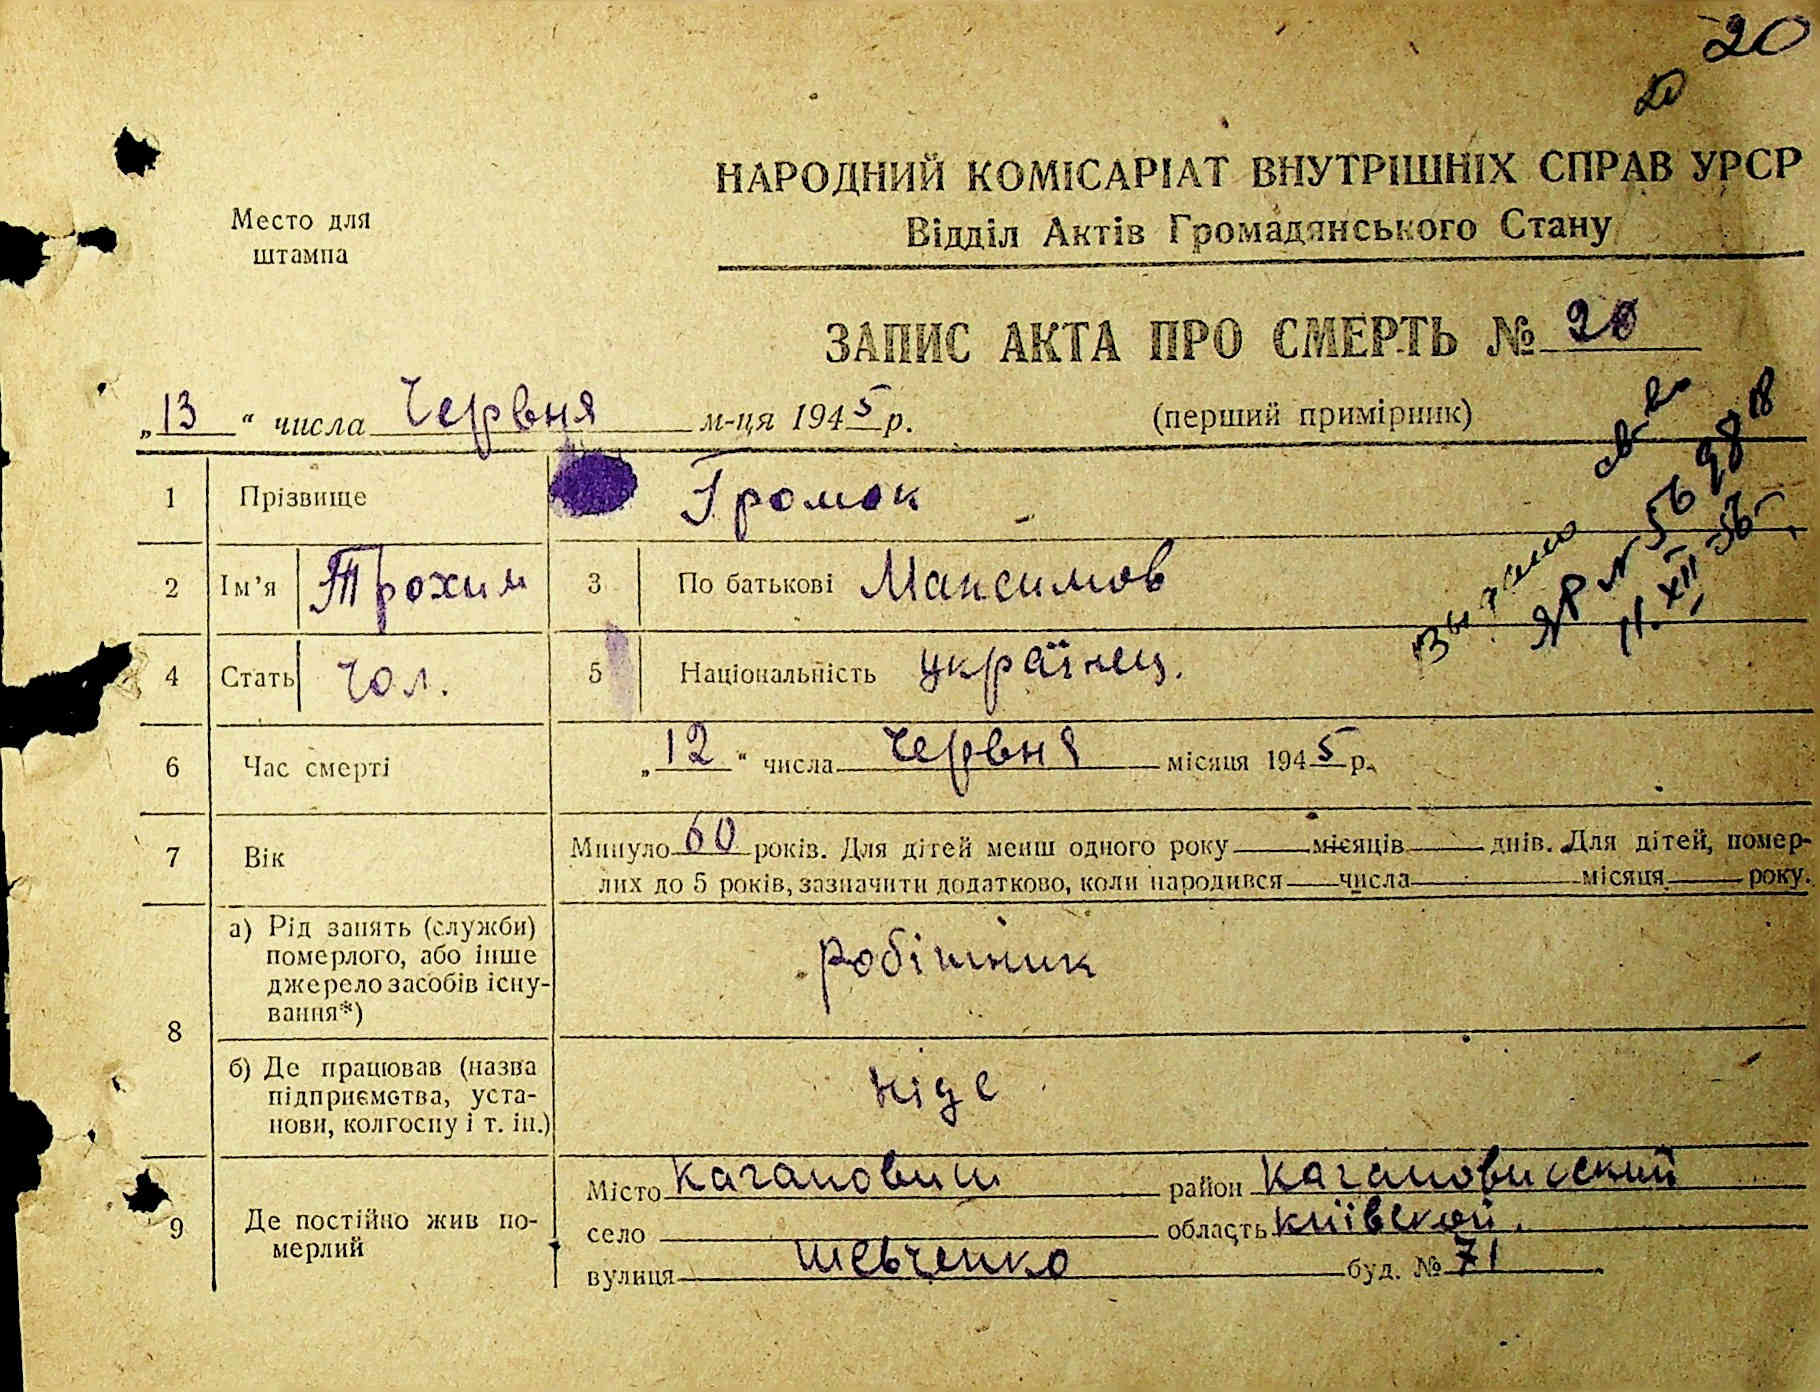 20
20
НАРОДНИЙ КОМІСАРІАТ ВНУТРІШНІХ СПРАВ УРСР
Відділ Актів Громадянського Стану
Место для
штампа
ЗАПИС АКТА ПРО СМЕРТЬ № 20
„13“ числа Червня м-ця 1945 р. (перший примірник)
1 Прізвище Громок
2 Ім’я Трохим 3 По батькові Максимов
4 Стать Чол. 5 Національність українец.
6 Час смерті „12“ числа Червня місяця 1945 р.
7 Вік Минуло 60 років. Для дітей менш одного року місяців днів. Для дітей, помер-
лих до 5 років, зазначити додатково, коли народився числа місяця року.
8 а) Рід занять (служби)
померлого, або інше
джерело засобів існу-
вання*)
робітник
б) Де працював (назва
підприємства, уста-
нови, колгоспу і т. ін.)
ніде
9 Де постійно жив по-
мерлий
Місто Кагановичи район Кагановиский
село область Київской.
вулиця Шевченко буд. № 71
св-во
ЯР №
11.XII-56